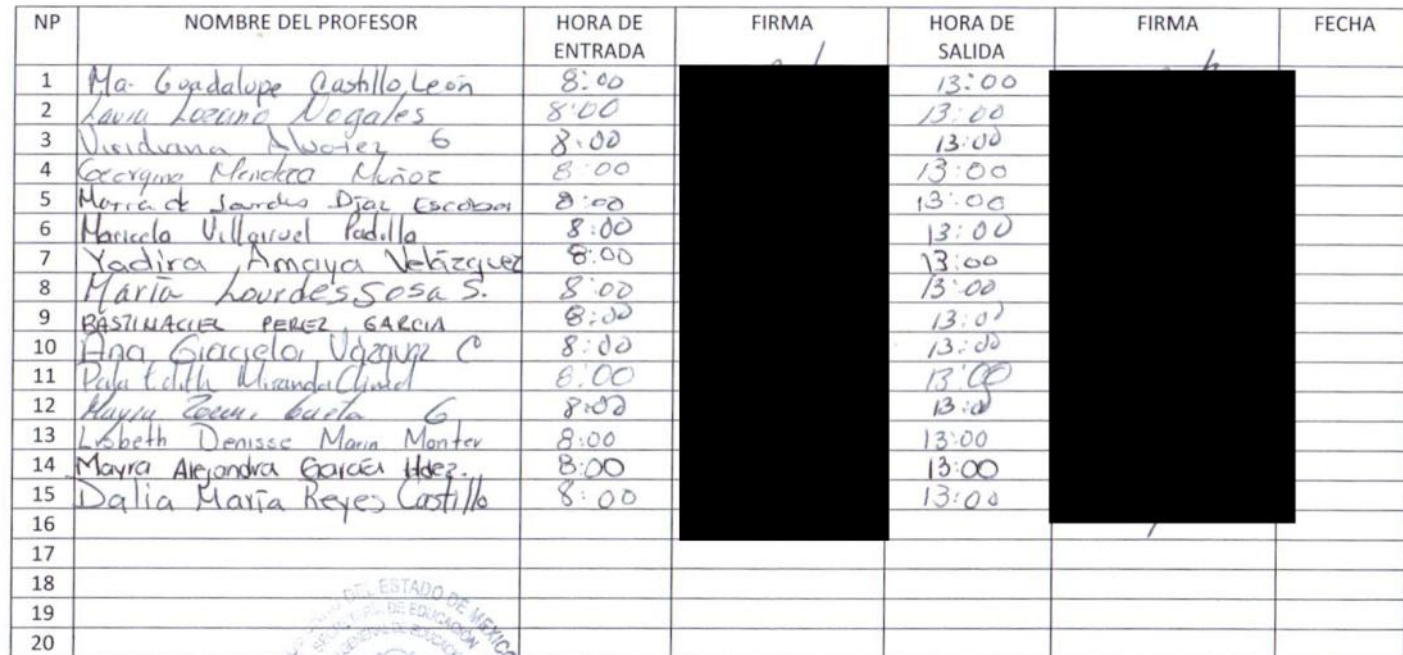 NP NOMBRE DEL PROFESOR HORA DE ENTRADA FIRMA HORA DE SALIDA FIRMA FECHA
1 Ma. Guadalupe Castillo León 8:00 13:00
2 Laura Lozano Nogales 8:00 13:00
3 Viridiana Alvarez G 8:00 13:00
4 Georgina Mendoza Muñoz 8:00 13:00
5 María de Lourdes Djaz Escobar 8:00 13:00
6 Maricela Villarruel Padilla 8:00 13:00
7 Yadira Amaya Velázquez 8:00 13:00
8 María Lourdes Sosa S. 8:00 13:00
9 PEREZ GARCIA 8:00 13:00
10 Ana Graciela Vázquez C 8:00 13:00
11 Edith Miranda 8:00 13:00
12 Mayra G 8:00 13:00
13 Lisbeth Denisse Marin Monter 8:00 13:00
14 Mayra Alejandra García Hdez. 8:00 13:00
15 Dalia María Reyes Castillo 8:00 13:00
16
17
18
19
20
DEL ESTADO DE MEXICO
DE EDUCACIÓN